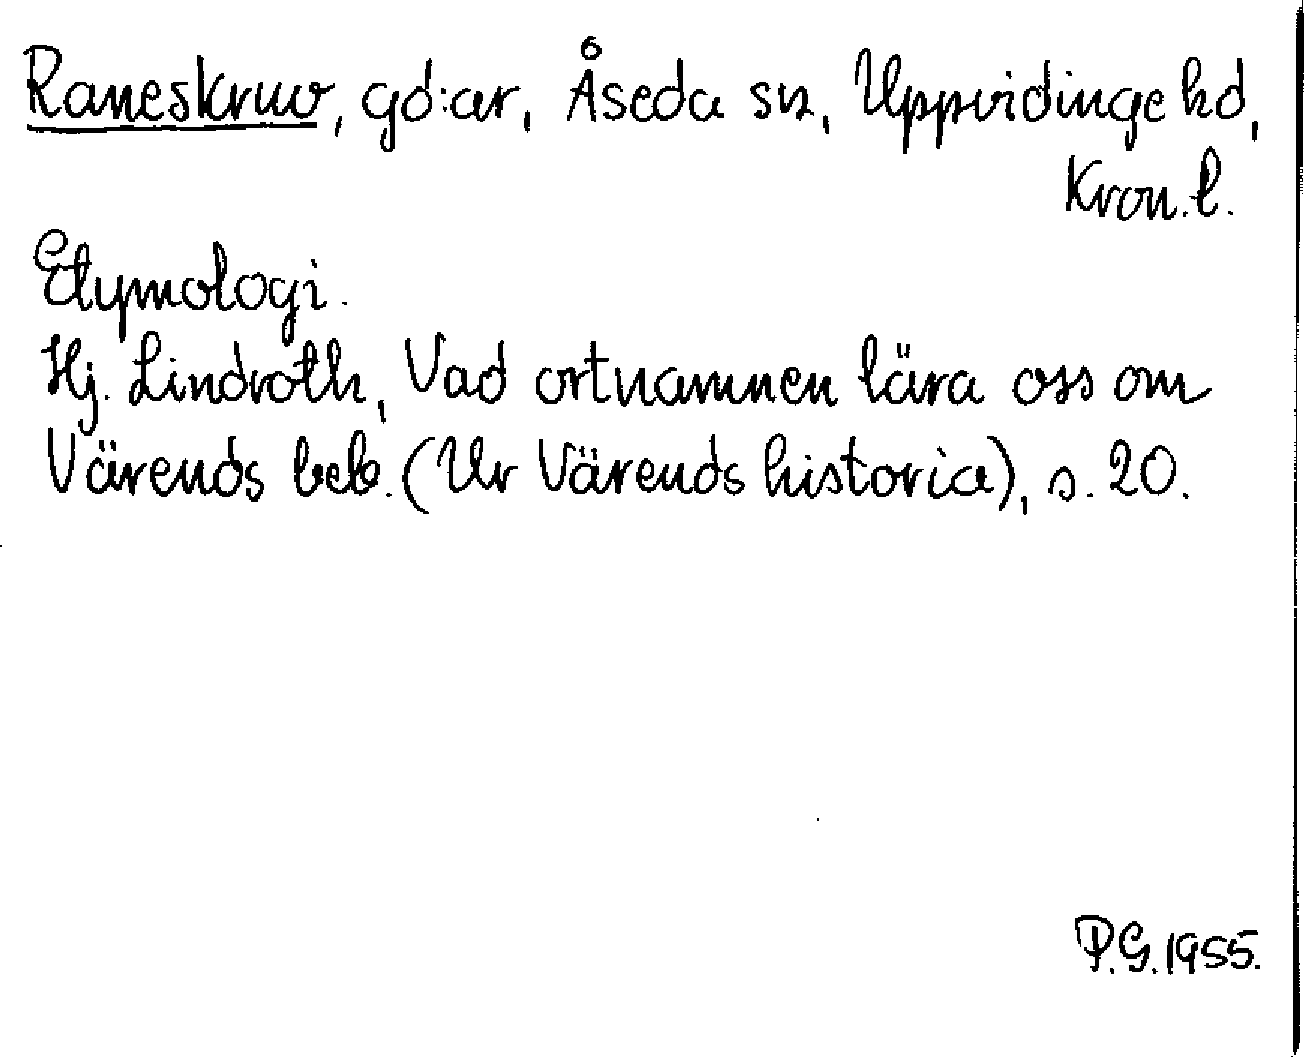 Raneskruv, gd:ar, Åseda sn, Uppvidinge hd,
Kron.l.
Etymologi.
Hj. Lindroth, Vad ortnamnen lära oss om
Värends beb. (Ur Värends historia), s. 20.
P.G. 1955.